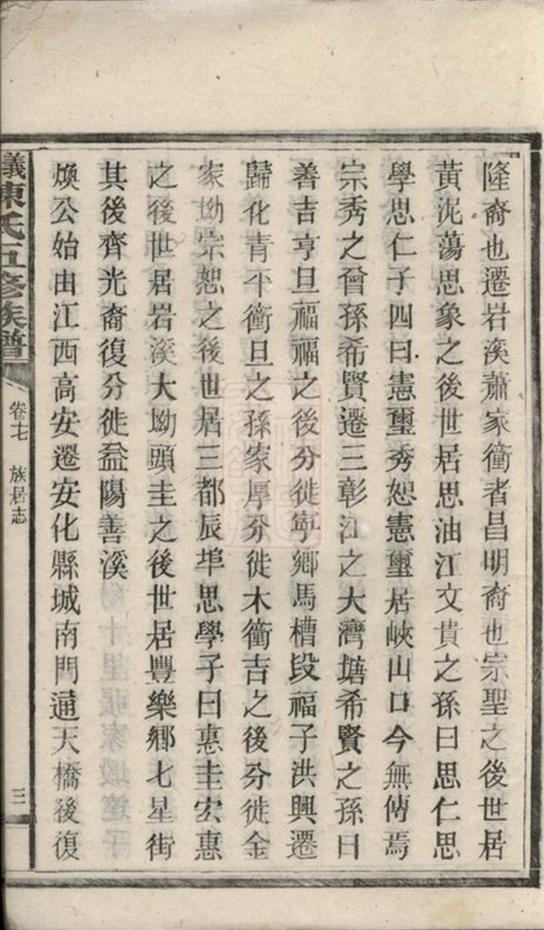 隆裔也遷岩溪蕭家衝者昌明裔也宗聖之後世居
黃泥蕩思象之後世居思油江文貴之孫曰思仁思
學思仁子四曰憲璽秀恕憲璽居峽山口今無傳焉
宗秀之曾孫希賢遷三彰江之大灣塘希賢之孫曰
善吉亨旦福福之後分徙寧鄉馬槽段福子洪興遷
歸化青平衝旦之孫家厚分徙木衝吉之後分徙金
家坳宗恕之後世居三都辰埠思學子曰惠圭宏惠
之後世居岩溪大坳頭圭之後世居豐樂鄉七星街
其後齊光裔復分徙益陽善溪
煥公始由江西高安遷安化縣城南門通天橋後復
義陳氏五修族譜
卷十七 族居志
三